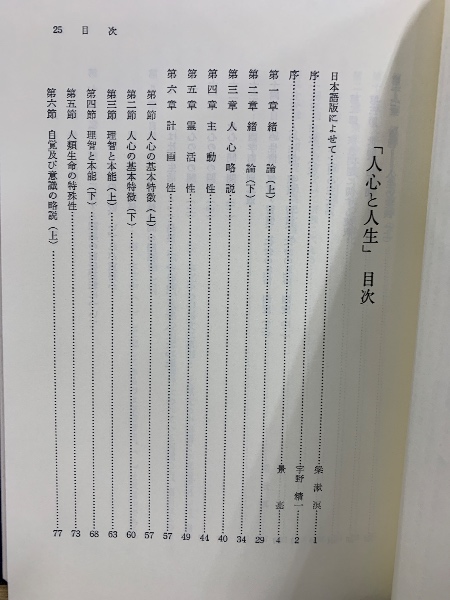 25　目　次
「人心と人生」　目次
日本語版によせて……梁漱溟　1
序……宇野精一　2
序……景　　4
第一章　緒　論（上）……29
第二章　緒　論（下）……34
第三章　人心略説……40
第四章　主動性……44
第五章　霊活性……49
第六章　計画性……57
第一節　人心の基本特徴（上）……57
第二節　人心の基本特徴（下）……60
第三節　理智と本能（上）……63
第四節　理智と本能（下）……68
第五節　人類生命の特殊性……73
第六節　自覚及び意識の略説（上）……77